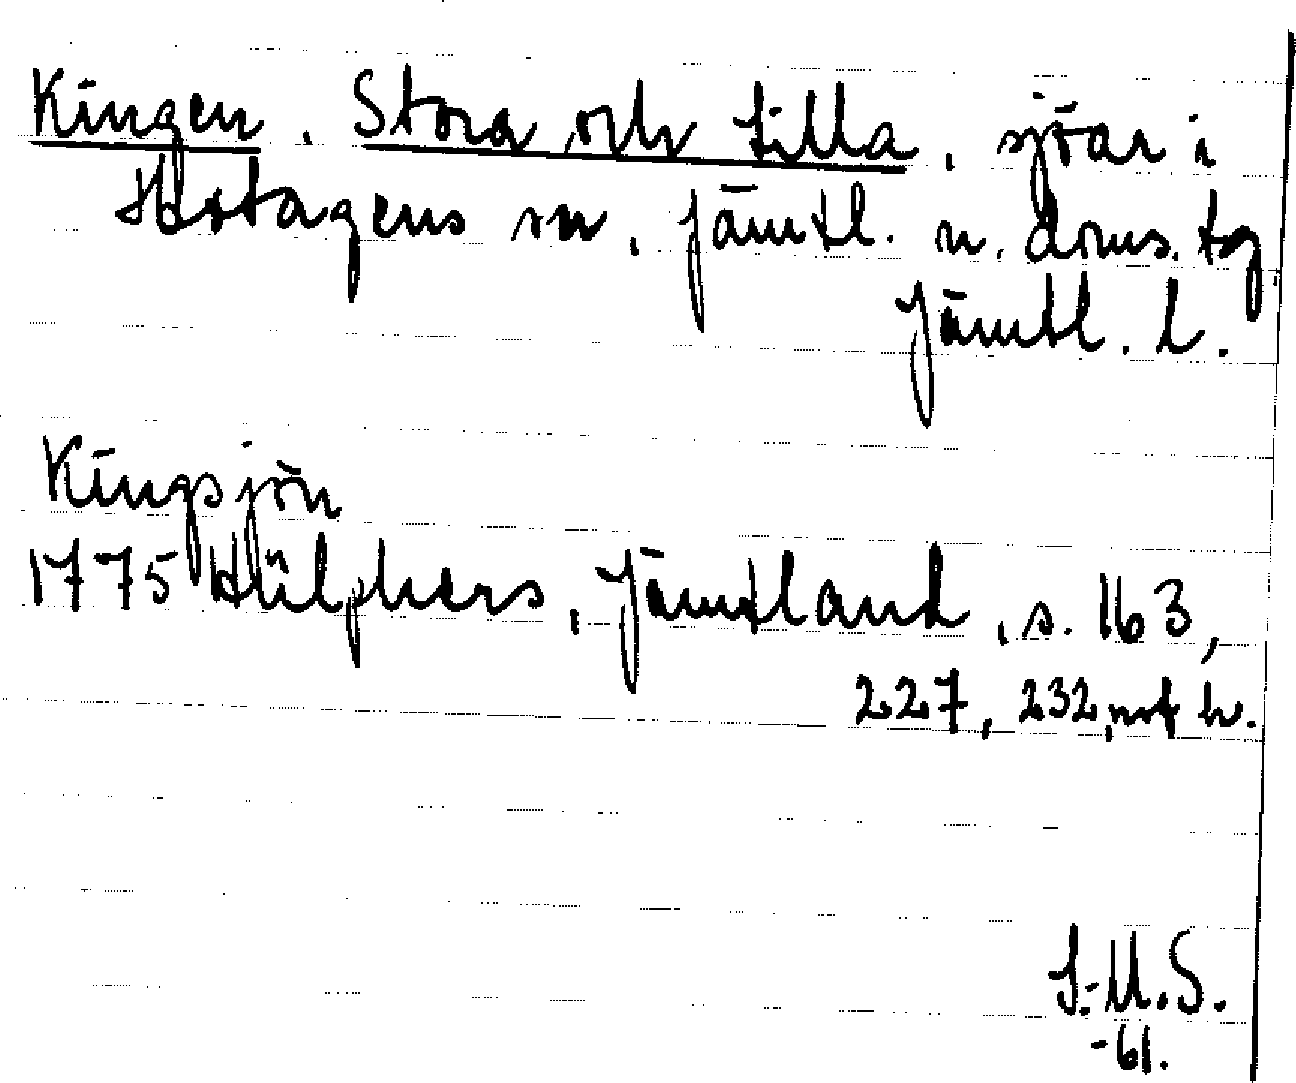 Kingen, Stora och Lilla, sjöar i
Hotagens sn, Jämtl. n. doms. tg
Jämtl. l.
Kingsjön
1775 Hülphers, Jämtland, s. 163,
227, 232, not h.
I.-M.S.
-61.